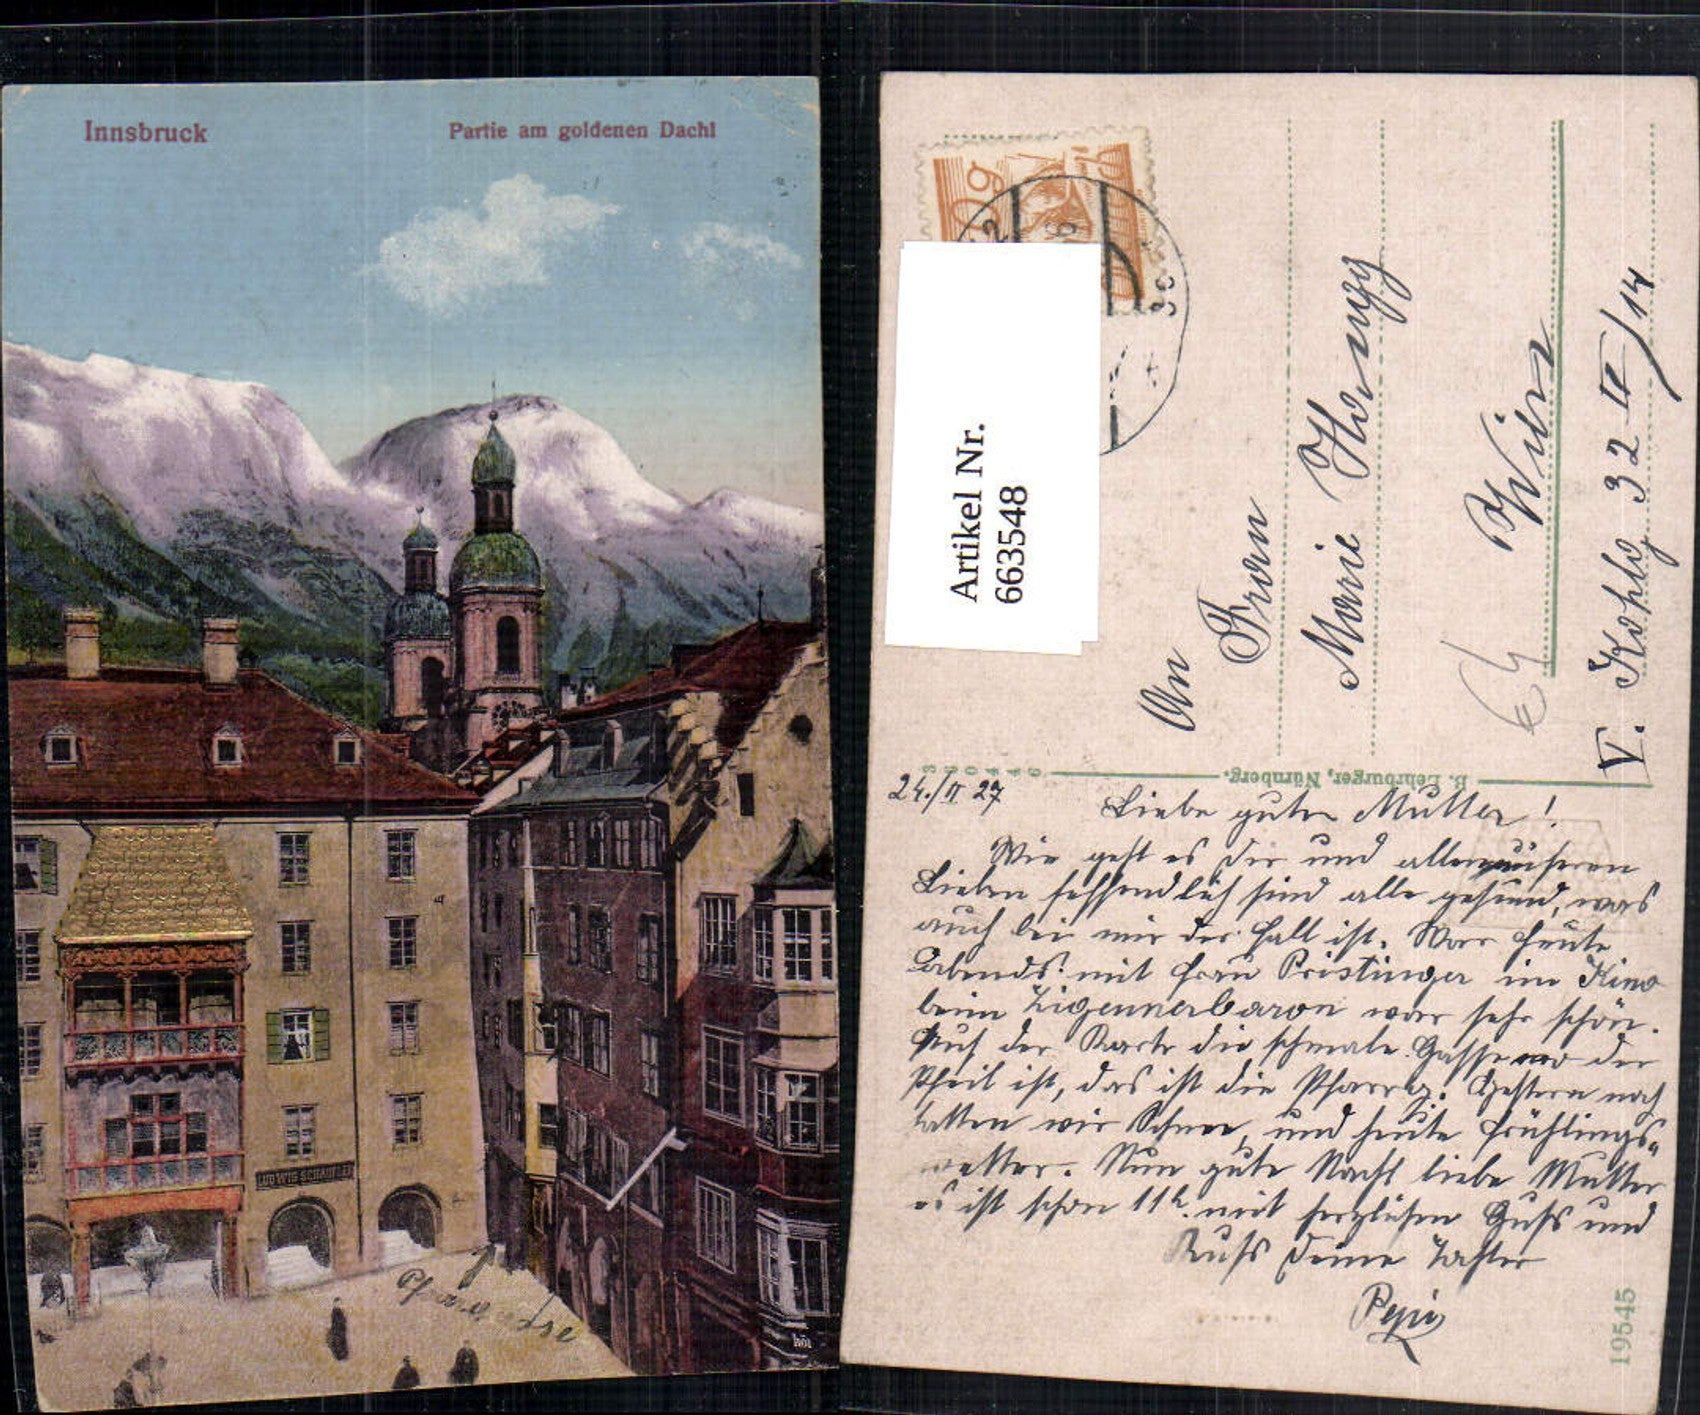 Innsbruck
Partie am goldenen Dachl
LUDWIG SCHAUFLER
Pfarrgasse
Artikel Nr.
663548
An
Frau
Marie
Wien
V. Kohlg 32 II/14
B. Lehrburger, Nürnberg.
24./II 27
Liebe gute Mutter!
Wie geht es Dir und allen unseren
Lieben hoffendlich sind alle gesund, was
auch bei mir der Fall ist. War heute
Abends mit Frau Pristinger im Kino
beim Zigeunerbaron war sehr schön.
Auf der Karte die schmale Gasse wo der
Pfeil ist, das ist die Pfarrg. Gestern noch
hatten wir Schnee, und heute Frühlings-
wetter. Nun gute Nacht liebe Mutter
es ist schon 11h. mit herzlichen Gruß und
Kuß Deine Tochter
Pepi
19545